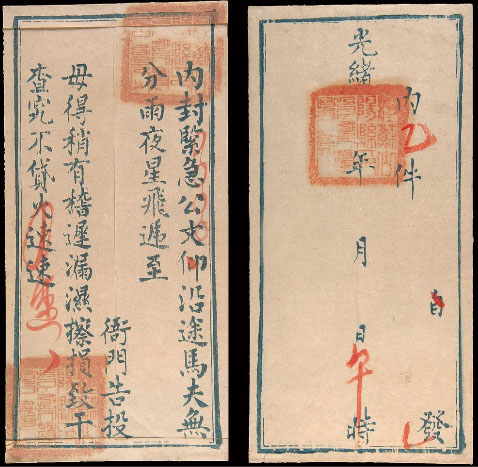 內封緊急公文仰沿途馬夫無
分雨夜星飛遞至
衙門告投
毋得稍有稽遲漏濕擦損致干
查究不貸火速速
自發
內件
光緒年月日午時